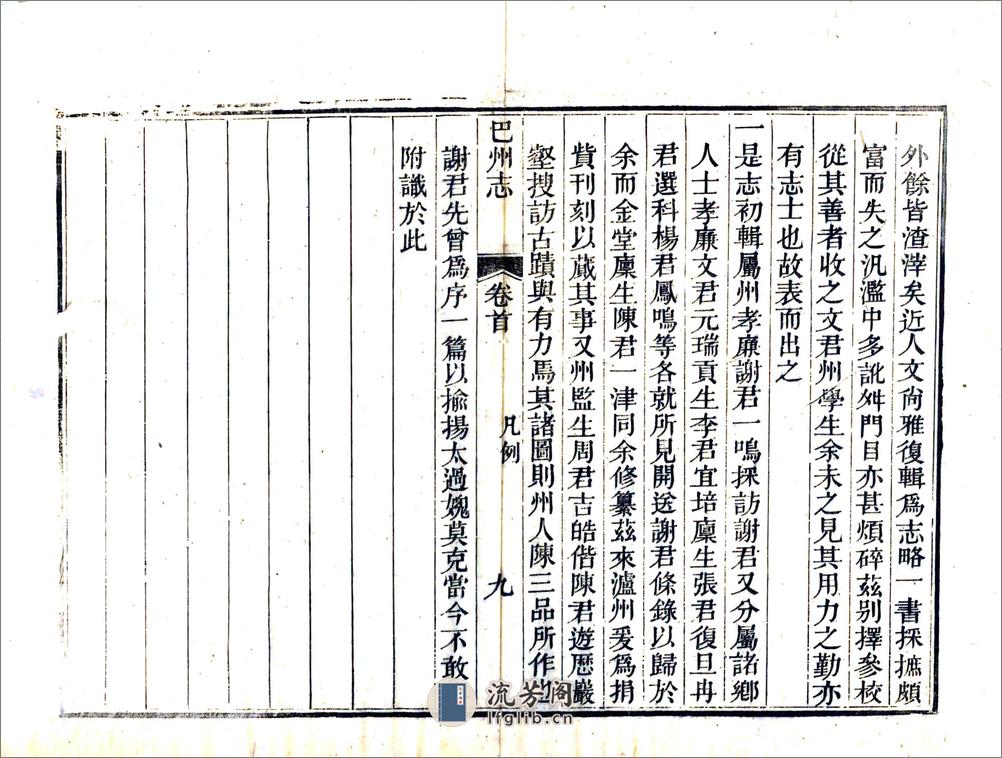 外餘皆渣滓矣近人文尙雅復輯爲志略一書採摭頗
富而失之汎濫中多訛舛門目亦甚煩碎茲别擇參校
從其善者收之文君州學生余未之見其用力之勤亦
有志士也故表而出之
一是志初輯屬州孝廉謝君一鳴探訪謝君又分屬諸鄉
人士孝廉文君元瑞貢生李君宜培廩生張君復旦冉
君選科楊君鳳鳴等各就所見開送謝君條錄以歸於
余而金堂廩生陳君一津同余修纂茲來瀘州爰爲捐
貲刊刻以蕆其事又州監生周君吉皓偕陳君遊歴巖
壑搜訪古蹟與有力焉其諸圖則州人陳三品所作也
巴州志
卷首
凡例
九
謝君先曾爲序一篇以揄揚太過媿莫克當今不敢
附識於此
流芳阁
lfglib.cn